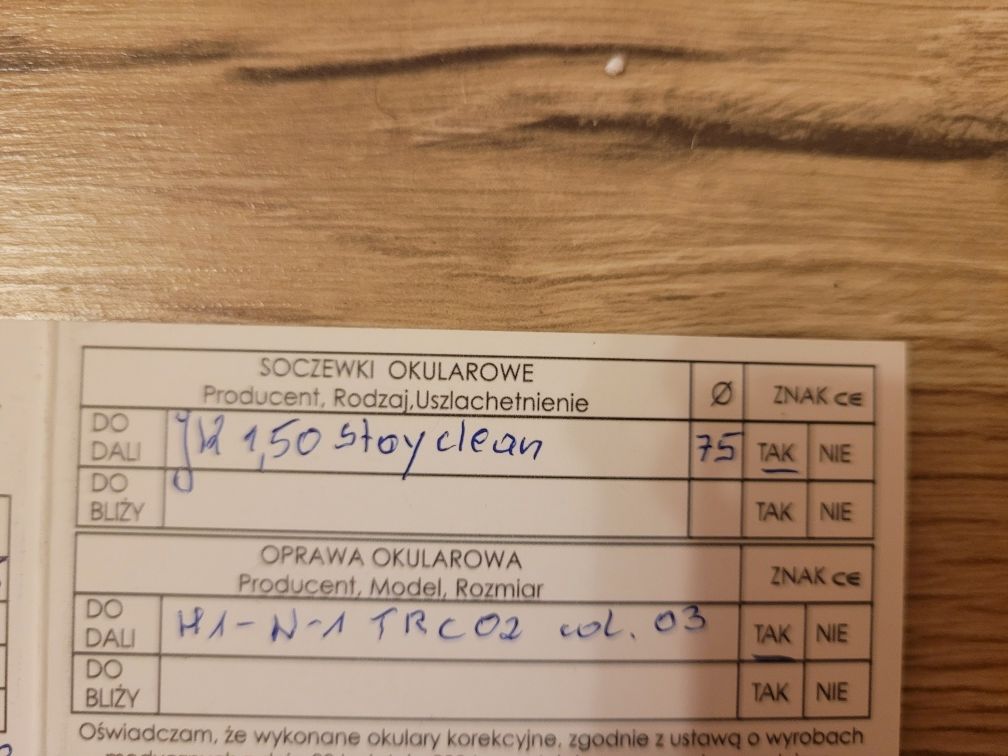 SOCZEWKI OKULAROWE
Producent, Rodzaj,Uszlachetnienie
Ø
ZNAK CE
DO DALI
1,50 stay clean
75
TAK
NIE
DO BLIŻY
TAK
NIE
OPRAWA OKULAROWA
Producent, Model, Rozmiar
ZNAK CE
DO DALI
H1-N-1 TRC02 col. 03
TAK
NIE
DO BLIŻY
TAK
NIE
Oświadczam, że wykonane okulary korekcyjne, zgodnie z ustawą o wyrobach